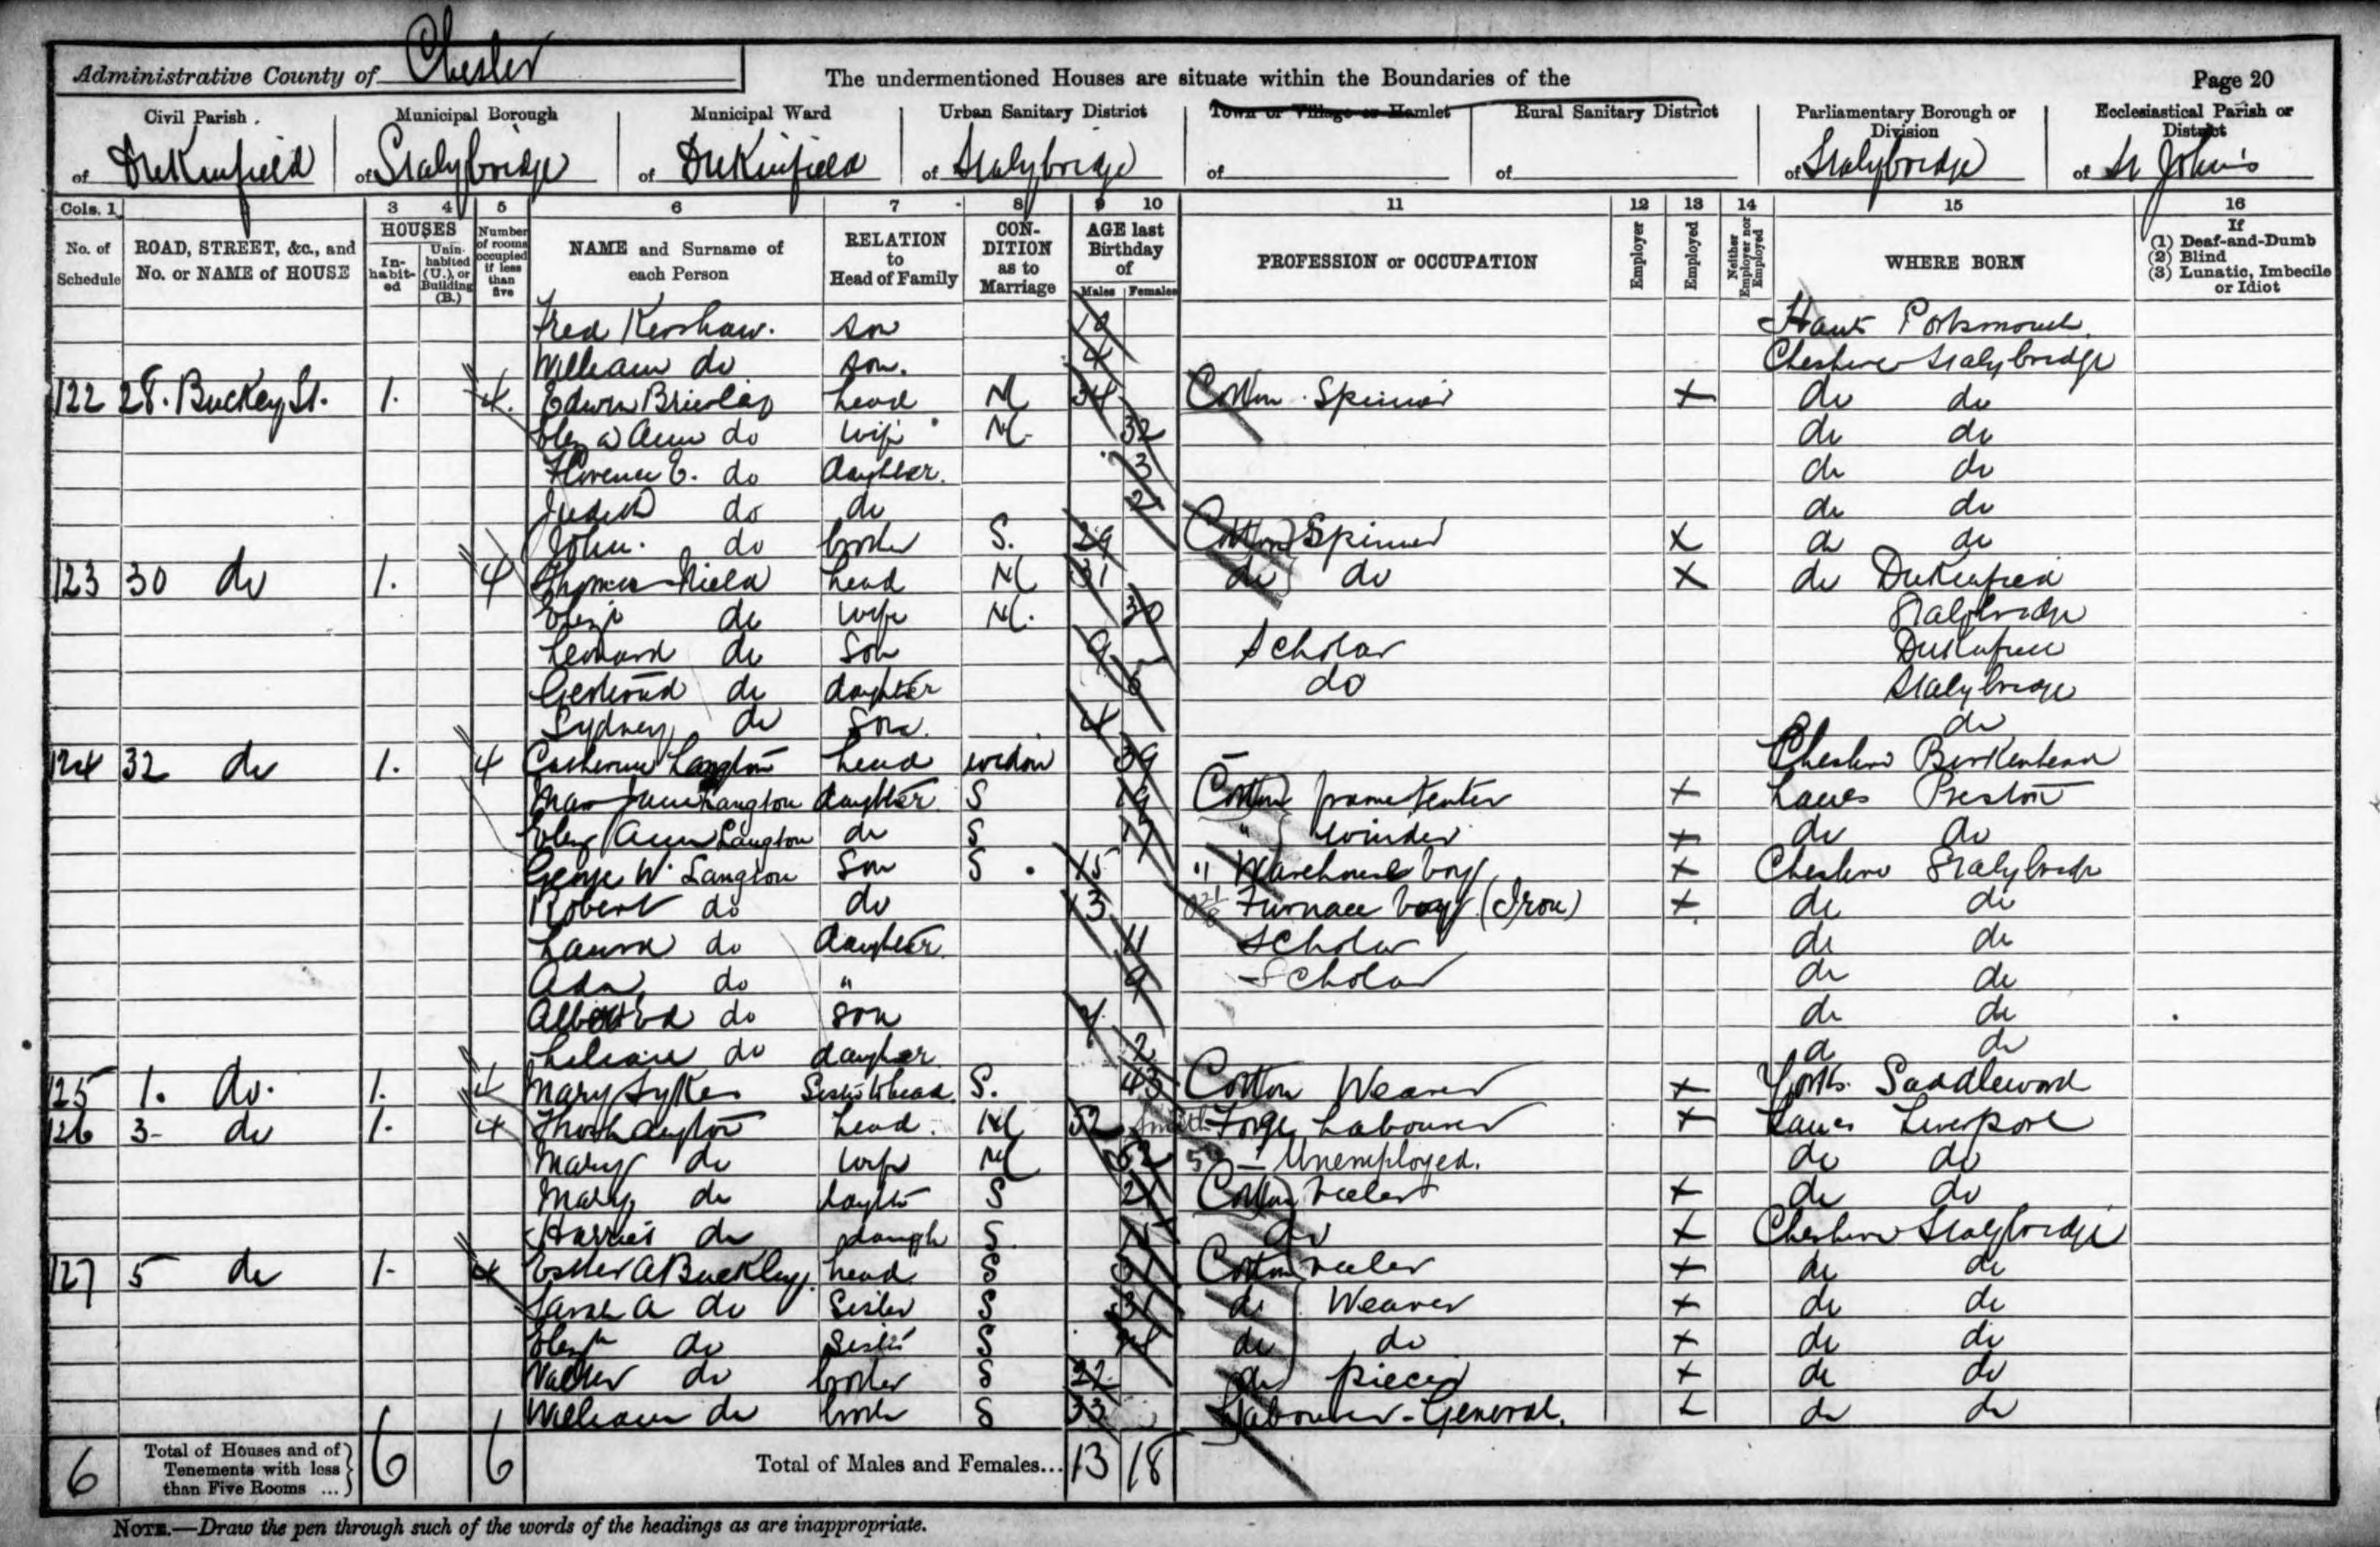 Administrative County of Chester
The undermentioned Houses are situate within the Boundaries of the
Page 20
Civil Parish of Dukinfield
Municipal Borough of Stalybridge
Municipal Ward of Dukinfield
Urban Sanitary District of Stalybridge
Town or Village or Hamlet of
Rural Sanitary District of
Parliamentary Borough or Division of Stalybridge
Ecclesiastical Parish or District of St John's
Cols. 1 3 4 5 6 7 8 9 10 11 12 13 14 15 16
No. of Schedule
ROAD, STREET, &c., and No. or NAME of HOUSE
HOUSES
In-habit-ed
Unin-habited (U.), or Building (B.)
Number of rooms occupied if less than five
NAME and Surname of each Person
RELATION to Head of Family
CON-DITION as to Marriage
AGE last Birthday of
Males Females
PROFESSION or OCCUPATION
Employer
Employed
Neither Employer nor Employed
WHERE BORN
If (1) Deaf-and-Dumb (2) Blind (3) Lunatic, Imbecile or Idiot
Fred Kershaw. son Hants Portsmouth
William do son. 4 Cheshire Stalybridge
122 28. Buckley St. 1. 4. Edwin Brierley head M 34 Cotton Spinner X do do
Eliza Ann do wife M 32 do do
Florence E. do daughter. 3 do do
Judith do do do do
John. do brother S. 29 Cotton Spinner X do do
123 30 do 1. 4 Thomas Nield head M 31 do do X do Dukinfield
Eliza do wife M. 30 Stalybridge
Leonard do son 9 Scholar Dukinfield
Gertrude do daughter 6 do Stalybridge
Sydney do son. 4 do
124 32 do 1. 4 Catherine Langton head widow 39 Cheshire Birkenhead
Mary Jane Langton daughter S 19 Cotton frame tenter X Lancs Preston
Eliz Ann Langton do S 17 " winder X do do
George W. Langton son S 15 " Warehouse boy X Cheshire Stalybridge
Robert do do 13 Furnace boy (Iron) X do do
Laura do daughter. 11 Scholar do do
Ada do " 9 Scholar do do
Albert Ed do son do do
Lilian do daughter 2 do do
125 1. do. 1. 4 Mary Sykes Sister to head. S. 43 Cotton Weaver X Yorks. Saddleworth
126 3 do 1. 4 Thos Langton head. M 52 Forge Labourer X Lancs Liverpool
Mary do wife M 52 Unemployed. do do
Mary do daughter S Cotton reeler X do do
Harriet do daugh S do X Cheshire Stalybridge
127 5 do 1. 4 Esther A Buckley head S Cotton reeler X do do
Jane A do Sister S 31 do Weaver X do do
Eliza do Sister S do do X do do
Walter do brother S 22 do piecer X do do
William do broth S 33 Labourer - General. X do do
6 Total of Houses and of Tenements with less than Five Rooms ... 6 6 Total of Males and Females... 13 18
NOTE.—Draw the pen through such of the words of the headings as are inappropriate.